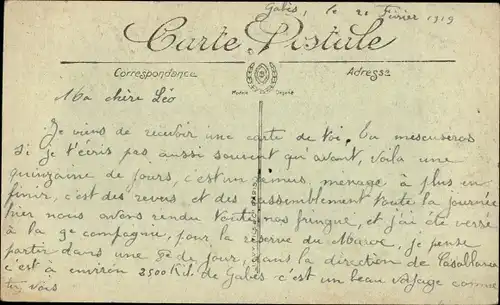 Gabès, le 2 Février 1919
Carte Postale
Correspondance
Adresse
Modèle Déposé
Ma chère Léo
Je viens de recevoir une carte de toi. Tu mescuseras
si je t'écris pas aussi souvent qu'avant, voila une
quinzaine de jours, c'est un remus, ménage à plus en
finir, c'est des revus et des rassemblement toute la journée
hier nous avons rendu toute nos fringue, et j'ai été versé
à la 9e compagnie, pour la réserve du Maroc, je pense
partir dans une de jour, dans la direction de Casablanca
c'est à environ 2500 Kil. de Gabès c'est un beau voyage comme
tu vois